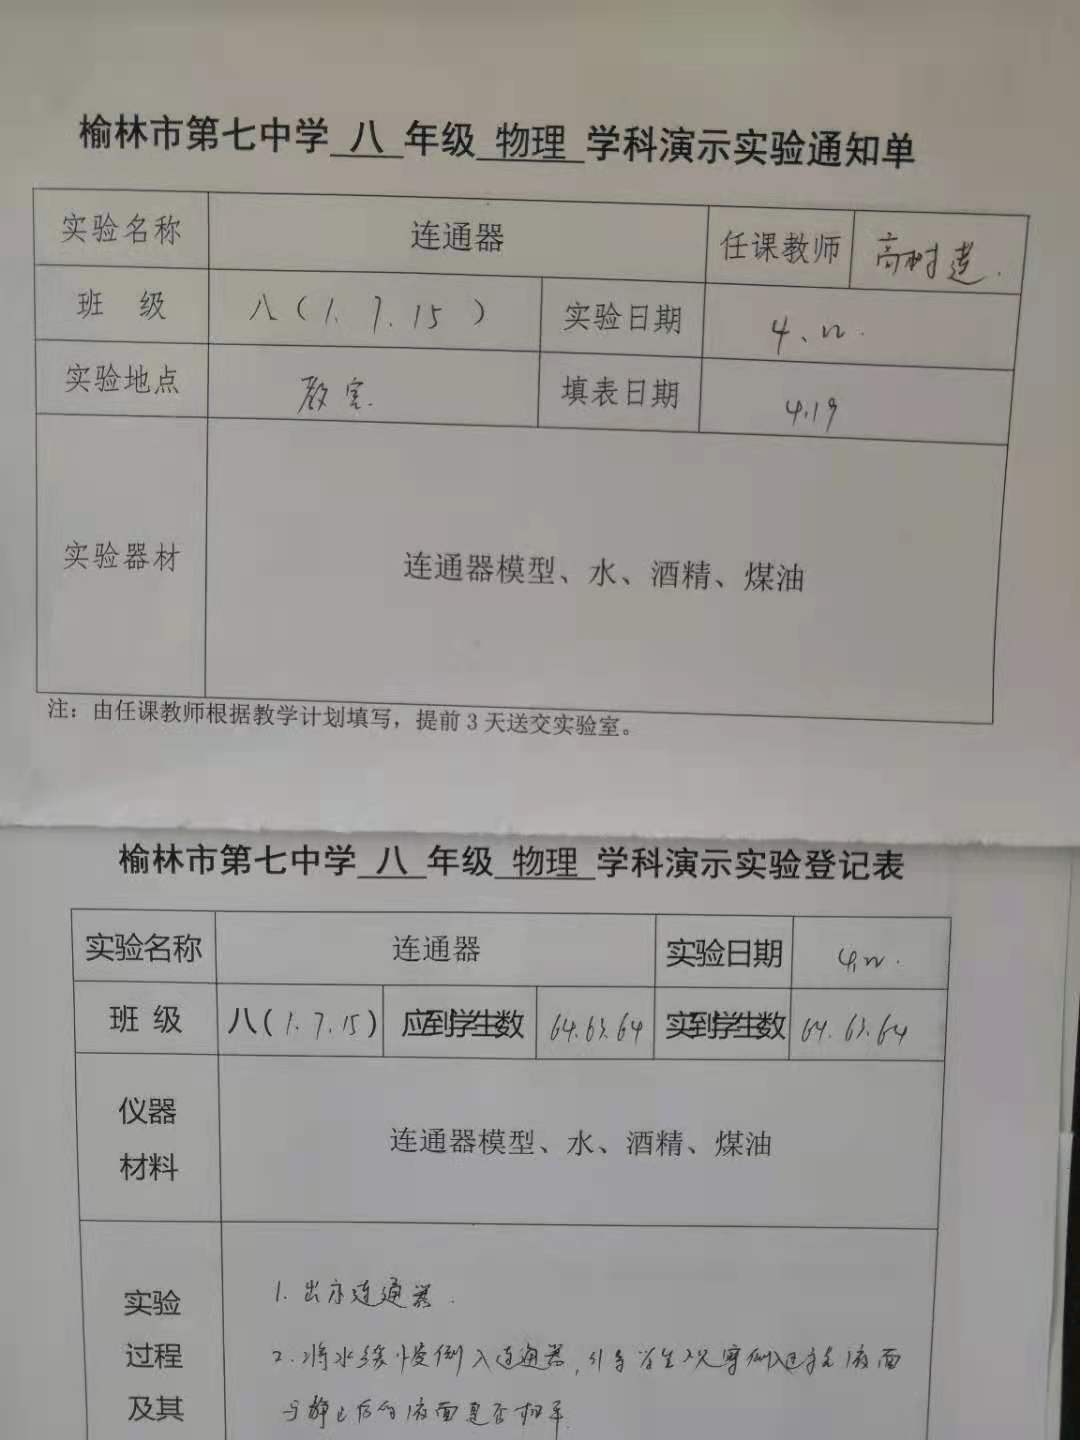 榆林市第七中学 八 年级 物理 学科演示实验通知单
实验名称 连通器 任课教师 高树莲.
班 级 八（1. 7. 15） 实验日期 4、22.
实验地点 教室. 填表日期 4.19
实验器材 连通器模型、水、酒精、煤油
注：由任课教师根据教学计划填写，提前 3 天送交实验室。
榆林市第七中学 八 年级 物理 学科演示实验登记表
实验名称 连通器 实验日期 4,22.
班 级 八（1. 7. 15） 应到学生数 64. 63. 64 实到学生数 64. 63. 64
仪器
材料
连通器模型、水、酒精、煤油
实验
过程
及其
1. 出示连通器.
2. 将水缓慢倒入连通器，引导学生观察倒入过程液面
与静止后的液面是否相平